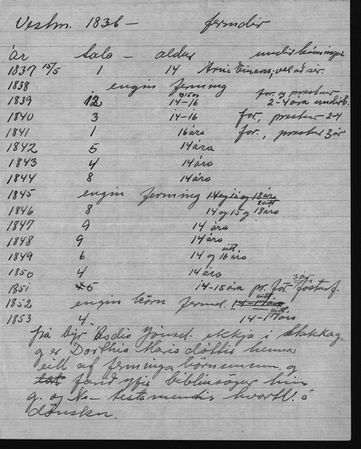 Vestm. 1836 — fermdir
ár tala — aldur undirbúningur
1837 15/5 1 14 Arni Einars, vel að sér.
1838 engin ferming
1839 12 14-16 for. og prestur 2-4 ára undirb.
1840 3 14-16 for., prestur 2-4
1841 1 16 ára for., prestur 3 ár
1842 5 14 ára
1843 4 14 ára
1844 8 14 ára
1845 engin ferming
1846 8 14 og 15 og 18 ára
1847 9 14 ára
1848 9 14 ára
1849 6 14 og 16 ára
1850 4 14 ára
1851 5 14-18 ára pr. for. fósturf.
1852 engin börn fermd.
1853 4 14-17 ára
frá því ekkja í Stakkag.
g er Dorthea Maria dóttir hennar
eitt af fermingabörnunum, g
farið yfir biblíusögur hin
g. og N- testamentis hvortt. á
dönsku.